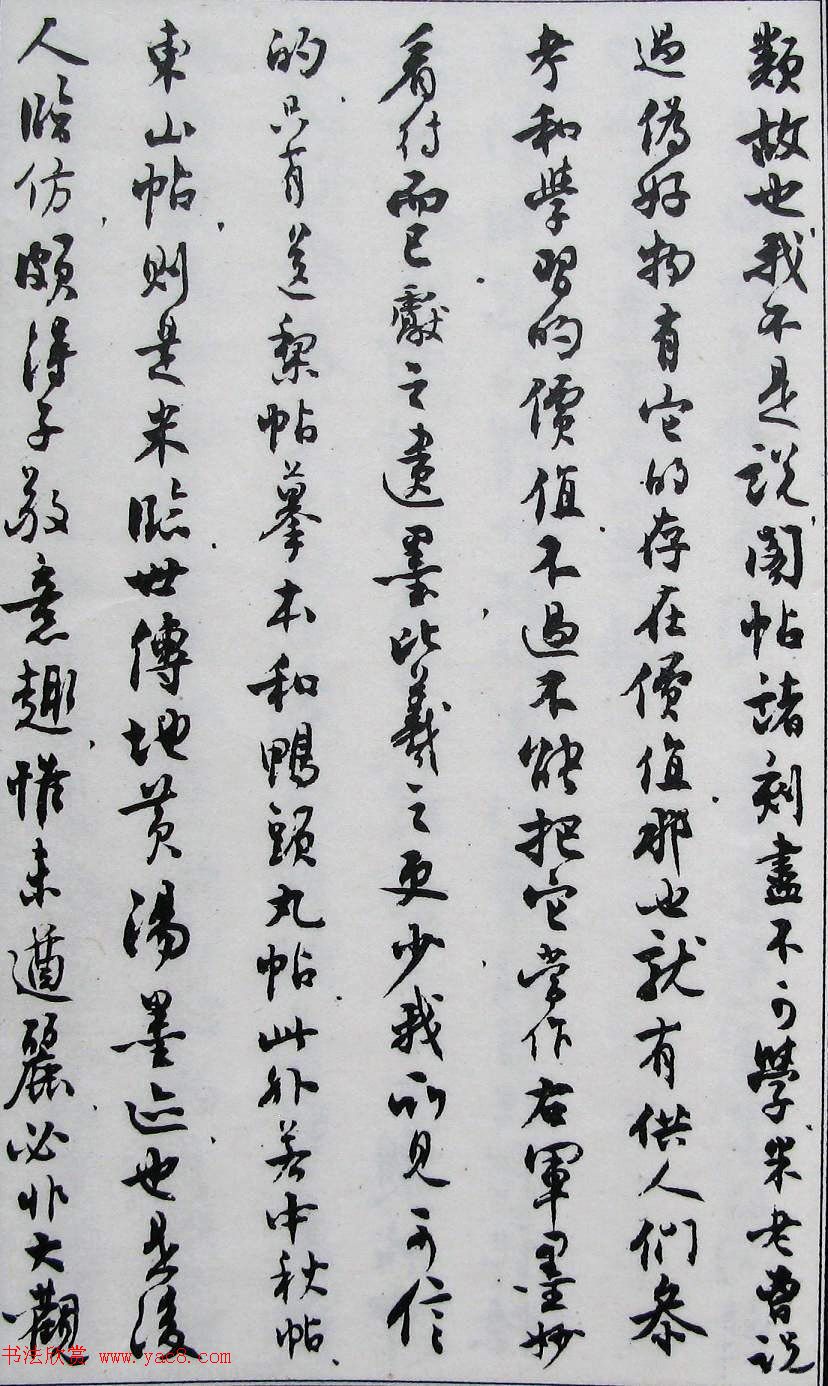 類故也我不是説閣帖諸刻盡不可學米老曹説
過偽好物有它的存在價值那也就有供人們參
考和學習的價值不過不能把它當作右軍墨妙
看待而已獻之遺墨比羲之更少我所見可信
的只有送梨帖摹本和鴨頭丸帖此外若中秋帖
東山帖則是米臨世傳地黄湯墨迹也是後
人臨仿頗得子敬意趣惟未遒麗必非大觀
书法欣赏 www.yac8.com